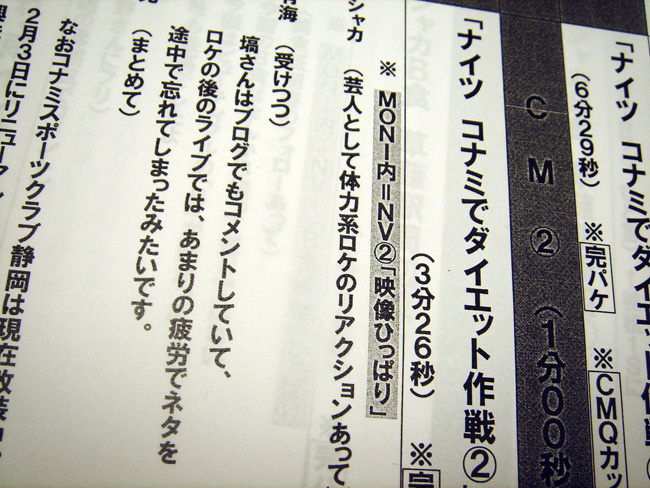 「ナイツ コナミでダイエット
(6分29秒) ※完パケ ※CMQカッ
CM② (1分00秒
「ナイツ コナミでダイエット作戦②
(3分26秒) ※完
※ MONI内=NV②「映像ひっぱり」
シャカ (芸人として体力系ロケのリアクションあって
海 (受けつつ)
塙さんはブログでもコメントしていて、
ロケの後のライブでは、あまりの疲労でネタを
途中で忘れてしまったみたいです。
(まとめて)
なおコナミスポーツクラブ静岡は現在改装中
2月3日にリニューアル